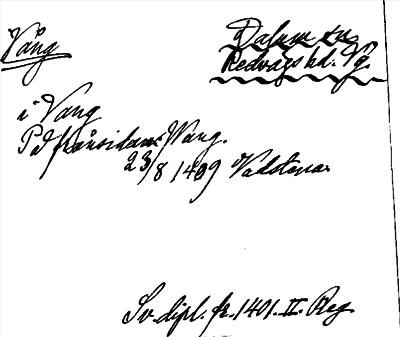 Vång
Dalum sn
Redvägs hd. Vg.
i Vang
Pa frånsidan: Wang.
23/8 1409 Vadstena
Sv. dipl. fr. 1401. II. Reg.